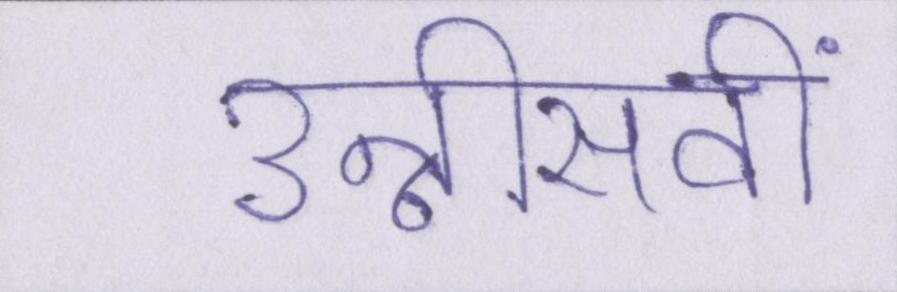 उन्नीसवीं